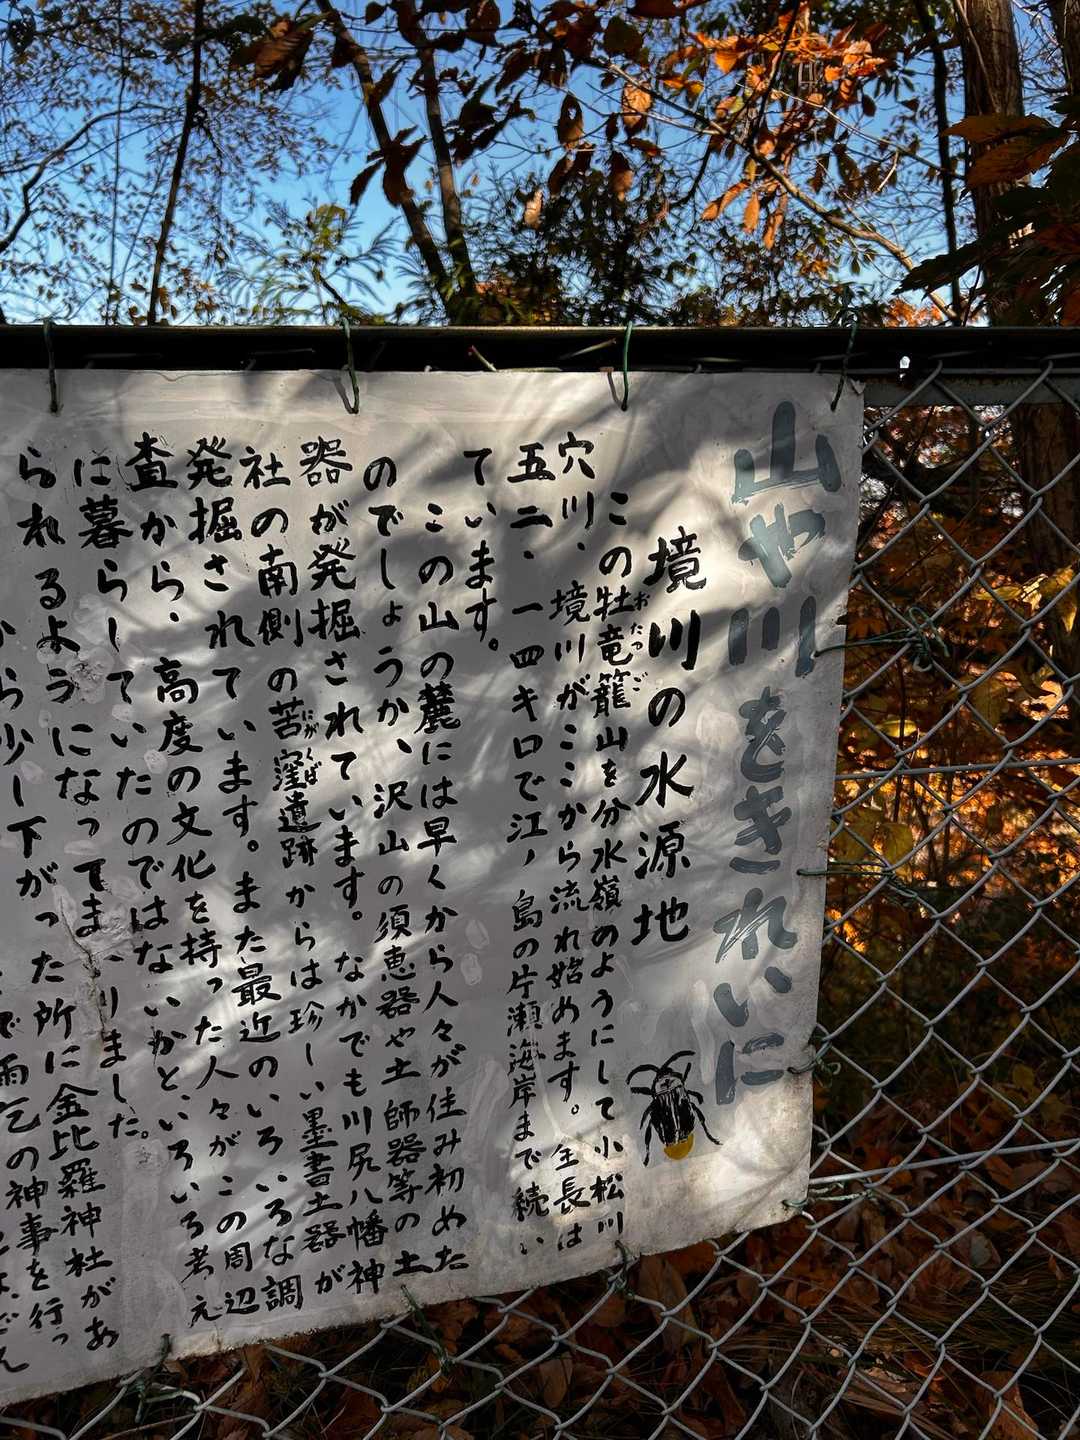 山や川をきれいに
境川の水源地
この牡竜籠山を分水嶺のようにして小松川
おたつご
穴川、境川がここから流れ始めます。全長は
五二、一四キロで江ノ島の片瀬海岸まで続い
ています。
この山の麓には早くから人々が住み初めた
のでしょうか、沢山の須恵器や土師器等の土
器が発掘されています。なかでも川尻八幡神
社の南側の苦窪遺跡からは珍しい墨書土器が
にがくぼ
発掘されています。また最近のいろいろな調
査から、高度の文化を持った人々がこの周辺
に暮らしていたのではないかといろいろ考え
られるようになってまいりました。
から少し下がった所に金比羅神社があ
で雨乞の神事を行っ